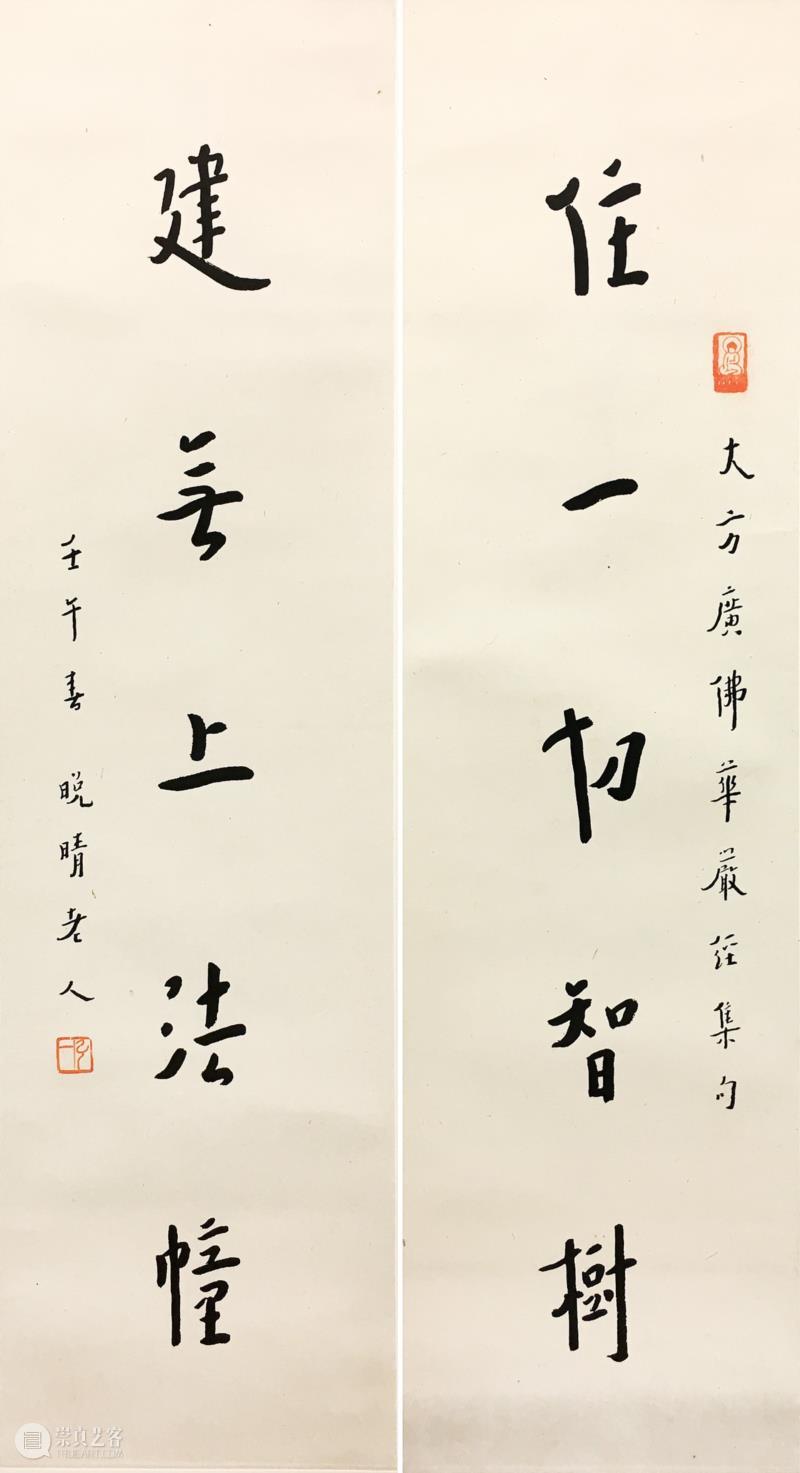 大方廣佛華嚴經集句
住一切智樹
建無上法幢
壬午春晚晴老人
崇真艺客
TRUEART.COM